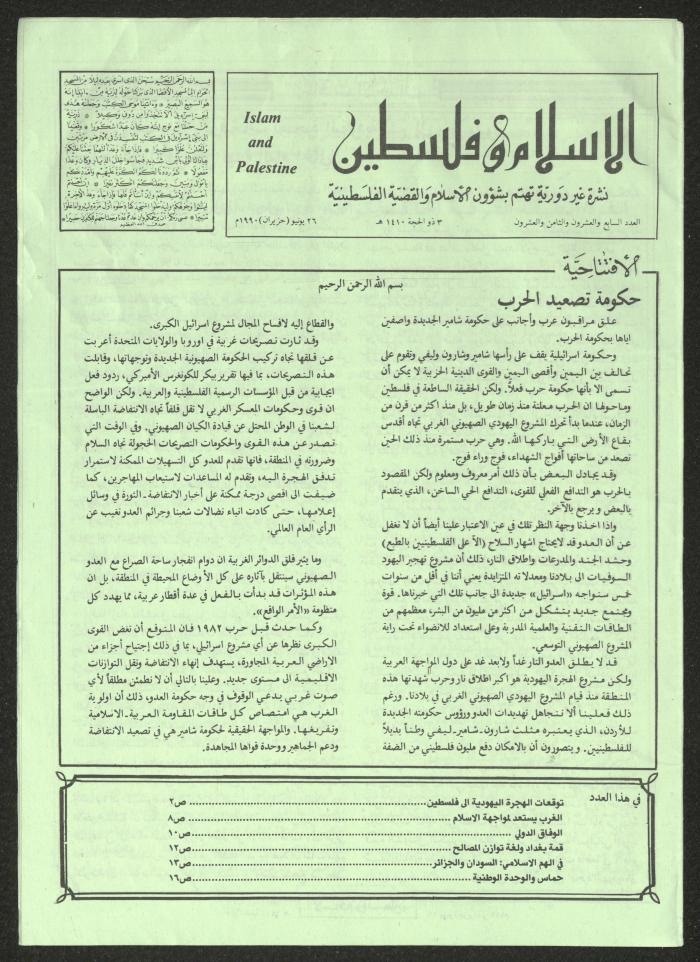 Islam
and
Palestine
الإسلام وفلسطين
نشرة غير دورية تهتم بشؤون الإسلام والقضية الفلسطينية
العدد السابع والعشرون والثامن والعشرون
٣ ذو الحجة ١٤١٠ هـ
٢٦ يونيو (حزيران) ١٩٩٠م
الافتتاحية
بسم الله الرحمن الرحيم
حكومة تصعيد الحرب
علق مراقبون عرب وأجانب على حكومة شامير الجديدة واصفين
اياها بحكومة الحرب.
وحكومة اسرائيلية يقف على رأسها شامير وشارون وليفي وتقوم على
تحالف بين اليمين وأقصى اليمين والقوى الدينية الحزبية لا يمكن أن
تسمى الا بأنها حكومة حرب فعلاً. ولكن الحقيقة الساطعة في فلسطين
وماحولها ان الحرب معلنة منذ زمان طويل، بل منذ اكثر من قرن من
الزمان، عندما بدأ تحرك المشروع اليهودي الصهيوني الغربي تجاه أقدس
بقاع الأرض التي باركها الله. وهي حرب مستمرة منذ ذلك الحين
تصعد من ساحاتها أفواج الشهداء، فوج وراء فوج.
وقد يجادل البعض بأن ذلك أمر معروف ومعلوم ولكن المقصود
بالحرب هو التدافع الفعلي للقوى، التدافع الحي الساخن، الذي يتقدم
بالبعض ويرجع بالآخر.
واذا اخذنا وجهة النظر تلك في عين الاعتبار علينا أيضاً أن لا نغفل
عن أن العدو قد لايحتاج اشهار السلاح (الا على الفلسطينيين بالطبع)
وحشد الجند والمدرعات واطلاق النار، ذلك أن مشروع تهجير اليهود
السوفيات الى بلادنا ومعدلاته المتزايدة يعني أننا في أقل من سنوات
خمس سنواجه «اسرائيل» جديدة الى جانب تلك التي خبرناها. قوة
ومجتمع جديد يتشكل من اكثر من مليون من البشر، معظمهم من
الطاقات التقنية والعلمية المدربة وعلى استعداد للانضواء تحت راية
المشروع الصهيوني التوسعي.
قد لا يطلق العدو النار غداً ولابعد غد على دول المواجهة العربية
ولكن مشروع الهجرة اليهودية هو اكبر اطلاق نار وحرب شهدتها هذه
المنطقة منذ قيام المشروع اليهودي الصهيوني الغربي في بلادنا. ورغم
ذلك فعلينا ألا نتجاهل تهديدات العدو ورؤوس حكومته الجديدة
للأردن، الذي يعتبره مثلث شارون-شامير-ليفي وطناً بديلاً
للفلسطينيين. ويتصورون أن بالامكان دفع مليون فلسطيني من الضفة
والقطاع إليه لافساح المجال لمشروع اسرائيل الكبرى.
وقد ثارت تصريحات غربية في اوروبا والولايات المتحدة أعربت
عن قلقها تجاه تركيب الحكومة الصهيونية الجديدة وتوجهاتها، وقابلت
هذه التصريحات، بما فيها تقرير بيكر للكونغرس الأميركي، ردود فعل
ايجابية من قبل المؤسسات الرسمية الفلسطينية والعربية. ولكن الواضح
ان قوى وحكومات المعسكر الغربي لا تقل قلقاً تجاه الانتفاضة الباسلة
لشعبنا في الوطن المحتل عن قيادة الكيان الصهيوني. وفي الوقت التي
تصدر عن هذه القوى والحكومات التصريحات الخجولة تجاه السلام
وضرورته في المنطقة، فانها تقدم للعدو كل التسهيلات الممكنة لاستمرار
تدفق الهجرة اليه، وتقدم له المساعدات لاستيعاب المهاجرين، كما
ضيفت الى اقصى درجة ممكنة على أخبار الانتفاضة - الثورة في وسائل
إعلامها، حتى كادت انباء نضالات شعبنا وجرائم العدو تغيب عن
الرأي العام العالمي.
وما يثير قلق الدوائر الغربية ان دوام انفجار ساحة الصراع مع العدو
الصهيوني سينتقل بآثاره على كل الأوضاع المحيطة في المنطقة، بل ان
هذه المؤثرات قد بدأت بالفعل في عدة أقطار عربية، مما يهدد كل
منظومة «الأمر الواقع».
وكما حدث قبل حرب ١٩٨٢ فان المتوقع أن تغض القوى
الكبرى نظرها عن أي مشروع اسرائيلي، بما في ذلك إجتياح أجزاء من
الاراضي العربية المجاورة، يستهدف إنهاء الانتفاضة ونقل التوازنات
الاقليمية الى مستوى جديد. وعلينا بالتالي أن لا نطمئن مطلقاً لأي
صوت غربي يدعي الوقوف في وجه حكومة العدو، ذلك أن اولوية
الغرب هي امتصاص كل طاقات المقاومة العربية-الاسلامية
وتفريغها. والمواجهة الحقيقية لحكومة شامير هي في تصعيد الانتفاضة
ودعم الجماهير ووحدة قواها المجاهدة.
في هذا العدد
توقعات الهجرة اليهودية الى فلسطين ........ ص٢
الغرب يستعد لمواجهة الاسلام ........ ص٨
الوفاق الدولي ........ ص١٠
قمة بغداد ولغة توازن المصالح ........ ص١٢
في الهم الاسلامي: السودان والجزائر ........ ص١٣
حماس والوحدة الوطنية ........ ص١٦